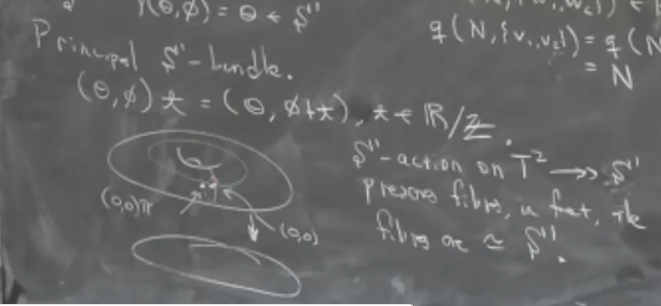 γ(θ,ϕ) = θ ∈ S¹
Principal S¹-bundle.
(θ,ϕ) t = (θ, ϕ+t), t ∈ ℝ/ℤ.
q(N,{v₁,v₂}) = q(N
= N
(0,0)π
(0,0)
S¹-action on T² →→ S¹
fibres, in fact, the
fibres are ≃ S¹.